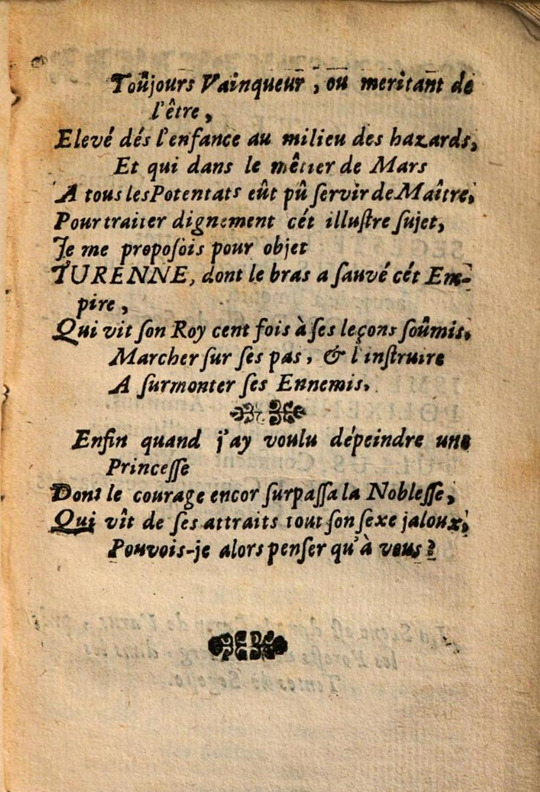 Toûjours Vainqueur, ou meritant de
l'être,
Elevé dés l'enfance au milieu des hazards,
Et qui dans le mêtier de Mars
A tous les Potentats eût pû ſervir de Maître,
Pour traiter dignement cét illuſtre ſujet,
Je me propoſois pour objet
TURENNE, dont le bras a ſauvé cét Em-
pire,
Qui vit ſon Roy cent fois à ſes leçons ſoûmis,
Marcher ſur ſes pas, & l'inſtruire
A ſurmonter ſes Ennemis.
Enfin quand j'ay voulu dépeindre une
Princeſſe
Dont le courage encor ſurpaſſa la Nobleſſe,
Qui vît de ſes attraits tout ſon ſexe jaloux,
Pouvois-je alors penſer qu'à vous?